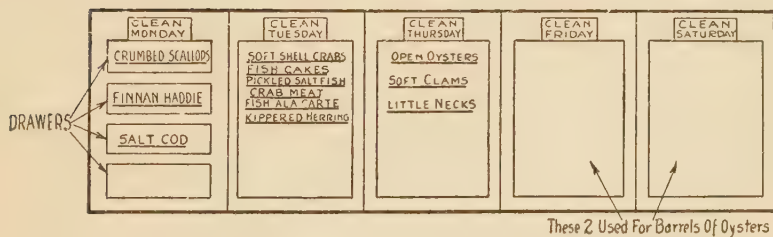 CLEAN
MONDAY
CRUMBED SCALLOPS
FINNAN HADDIE
SALT COD
DRAWERS
CLEAN
TUESDAY
SOFT SHELL CRABS
FISH CAKES
PICKLED SALT FISH
CRAB MEAT
FISH ALA CARTE
KIPPERED HERRING
CLEAN
THURSDAY
OPEN OYSTERS
SOFT CLAMS
LITTLE NECKS
CLEAN
FRIDAY
CLEAN
SATURDAY
These 2 Used For Barrels Of Oysters